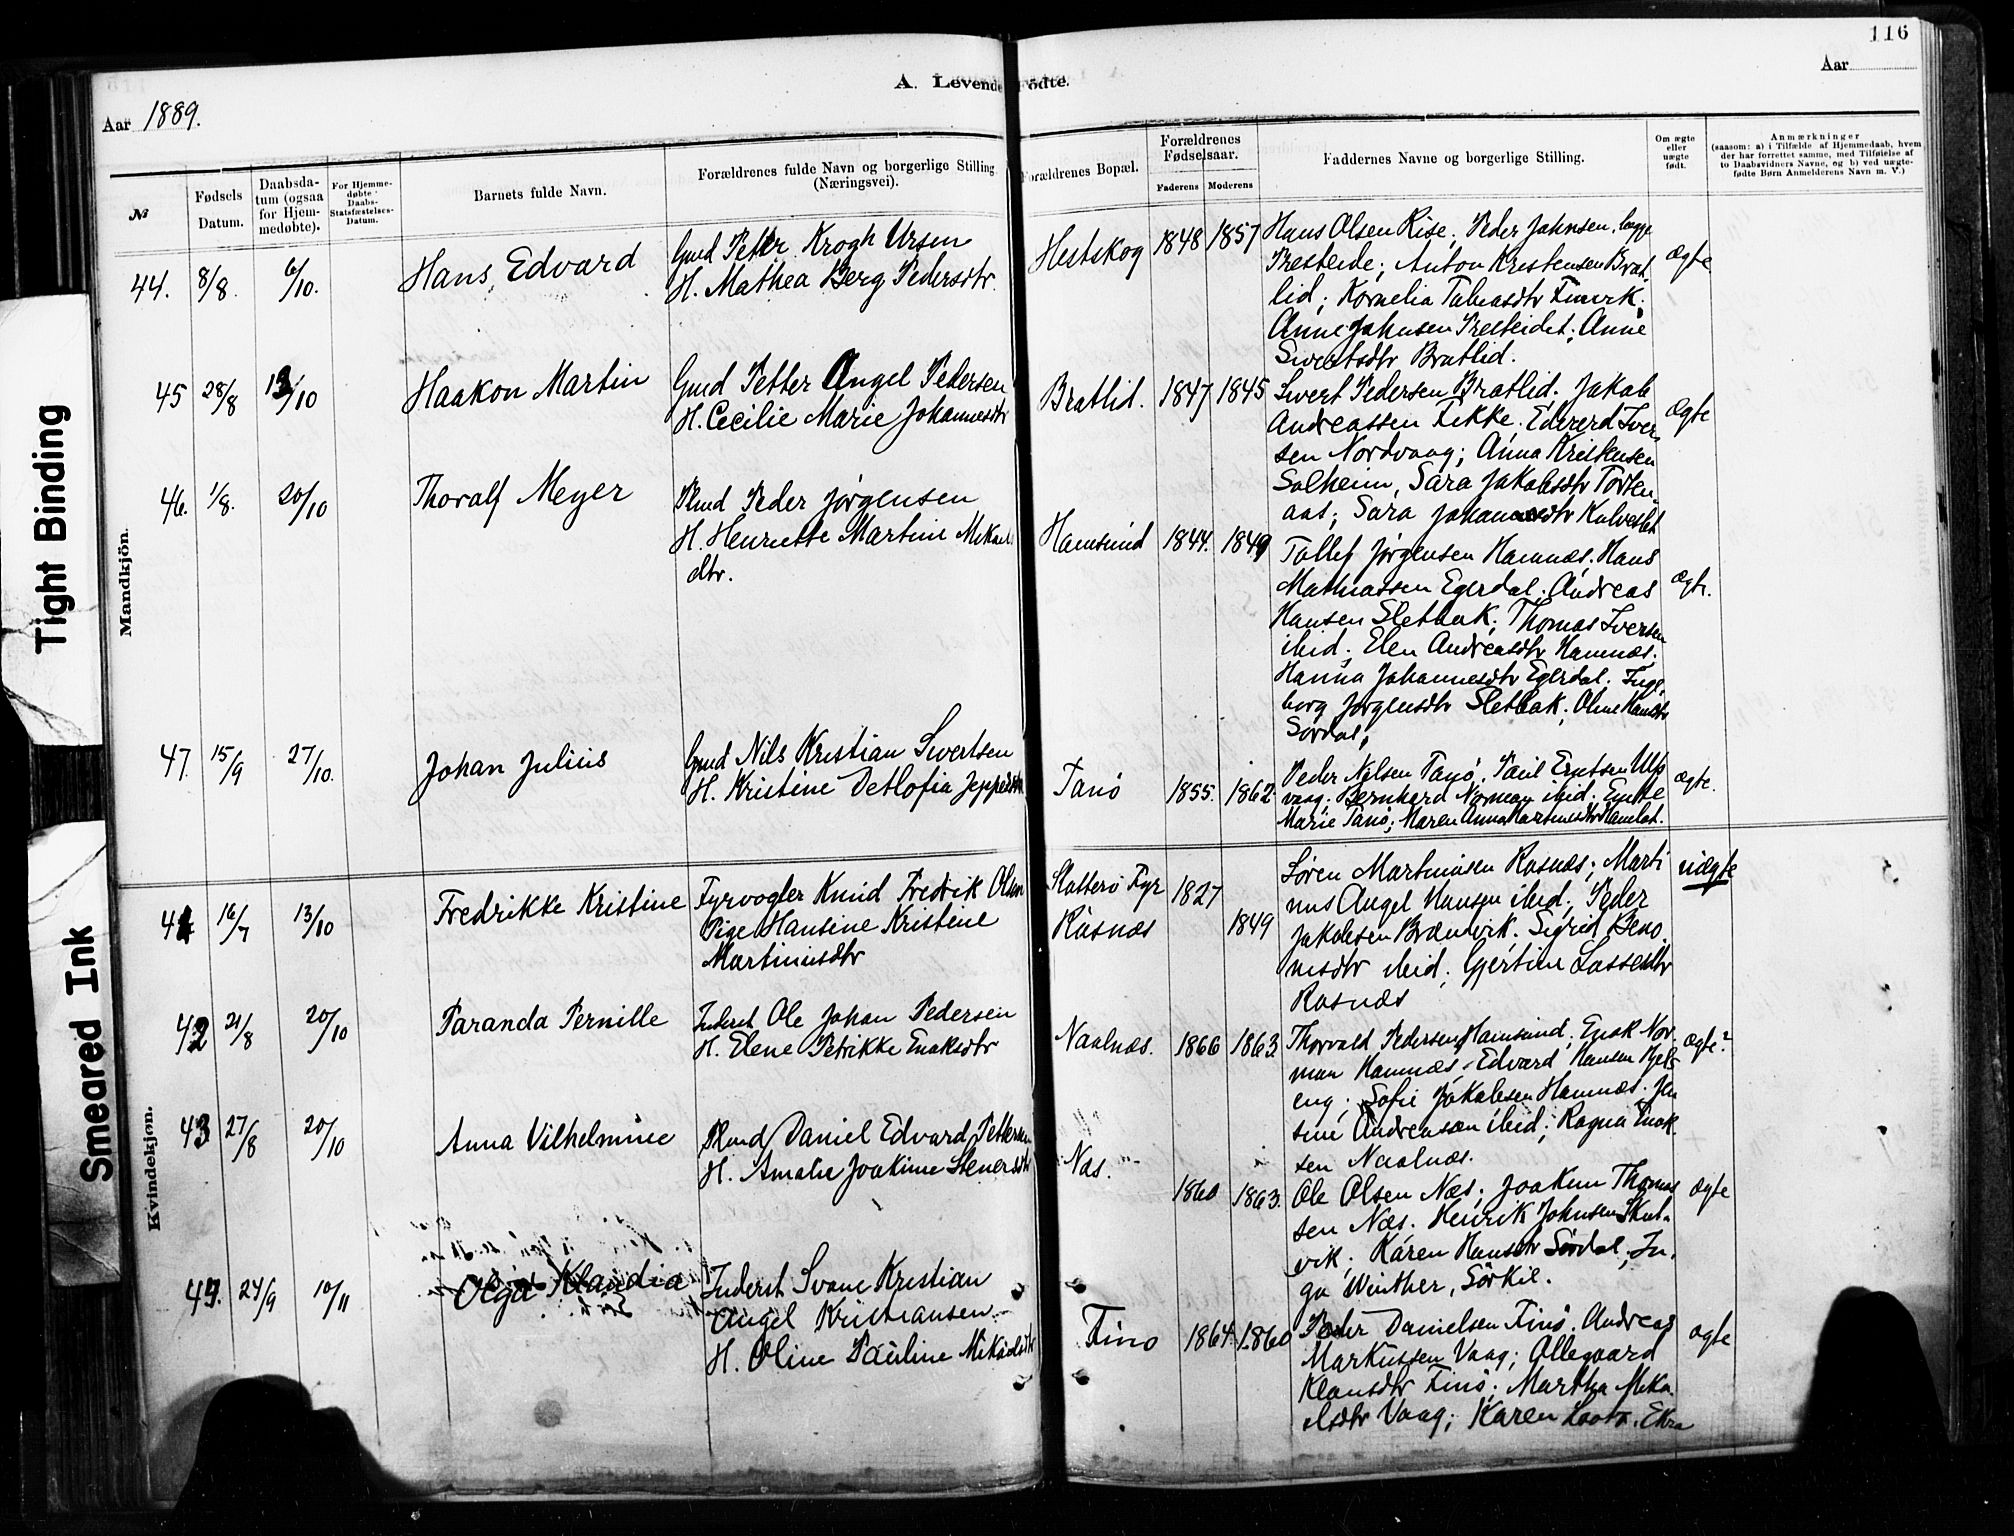 116
A. Levende Fødte.
Aar
Aar 1889.
№
Fødsels Datum.
Daabsdatum (ogsaa for Hjemmedøbte).
For Hjemmedøbte Daabs-Statsfæstelses-Datum.
Barnets fulde Navn.
Forældrenes fulde Navn og borgerlige Stilling (Næringsvei).
Forældrenes Bopæl.
Forældrenes Fødselsaar.
Faderens
Moderens
Faddernes Navne og borgerlige Stilling.
Om ægte eller uægte født.
Anmærkninger
(saasom: a) i Tilfælde af Hjemmedaab, hvem
der har forrettet samme, med Tilføielse af
to Daabsvidners Navne, og b) ved uægte-
fødte Børn Anmelderens Navn m. V.)
Tight Binding
Smeared Ink
Mandkjön.
44. 8/8. 6/10. Hans Edvard
Gmd Petter Krogh Ursen
H. Mathea Berg Pedersdtr.
Hestskog 1848 1857
Hans Olsen Rise; Peder Johnsen, begge
Presteide; Anton Kristensen Brat
lid; Kornelia Tobiasdtr Finvik.
Anne Johnsen Presteidet; Anne
Sivertsdtr Bratlid.
ægte
45 28/8 13/10 Haakon Martin
Gmd Petter Angel Pedersen
H. Cecilie Marie Johannesdtr
Bratlid. 1847 1845
Sivert Pedersen Bratlid. Jakob
Andreassen Fikke. Edvard Iver
sen Nordvaag; Anna Kristensen
Solheim, Sara Jakobsdtr Torten
aas; Sara Johannesdtr Kalveslet
Ægte
46. 1/8. 20/10 Thoralf Meyer
Plmd Peder Jørgensen
H. Henriette Martine Mikaels
dtr.
Hamsund 1844. 1849
Tollef Jørgensen Hamnæs. Hans
Mathiassen Egerdal; Andreas
Hansen Sletbak; Thomas Iversen
ibid; Elen Andreasdtr Hamnæs;
Hanna Johannesdtr Egerdal. Inge
borg Jørgensdtr Sletbak; Oline Hansdtr
Sørdal;
Ægte.
47. 15/9 27/10. Johan Julius
Gmd Nils Kristian Sivertsen
H. Kristine Detlofia Jeppesdtr
Tanö 1855. 1862
Peder Nilsen Tanö, Paul Erntsen Ulf
vaag; Bernhard Norman ibid. Enste
Marie Tanö; Maren Anna Martinusdtr Hamlot.
ægte.
Kvindekjön.
41 16/7 13/10 Fredrikke Kristine
Fyrvogter Knud Fredrik Olsen
Pige Hansine Kristine
Martinusdtr
Slotterö Fyr 1827
Rosnæs 1849
Søren Martinusen Rosnæs; Marti
nus Angel Hansen ibid; Peder
Jakobsen Brændvik. Sigrid Beno
nisdtr ibid; Gjertine Lassesdtr
Rosnæs
uægte
42 21/8 20/10 Paranda Pernille
Inderst Ole Johan Pedersen
H. Elene Petrikke Enoksdtr
Naalnæs. 1866 1863
Thorvald Pedersen Hamsund; Enok Nor
man Hamnæs, Edvard Hansen Hjels
eng; Sofie Jakobsen Hamnæs. Jen
sine Andreasen ibid; Ragna Enok
sen Naalnæs.
ægte?
43 27/8 20/10 Anna Vilhelmine
Plmd Daniel Edvard Pettersen
H. Amalie Joakime Stenersdtr
Næs. 1860 1863.
Ole Olsen Næs; Joakim Thomas
sen Næs. Henrik Johnsen Skut
vik; Karen Hansdtr Sørdal; In
ga Winther, Sørkil.
ægte
49. 24/9 10/11 Olga Klaudia
Inderst Svane Kristian
Angel Kristiansen
H. Oline Pauline Mikaelsdtr
Finö 1864. 1860
Peder Danielsen Finö. Andreas
Markussen Vaag; Ollegaard
Klausdtr Finö; Martha Mika
elsdtr Vaag; Karen Lootz. Ekra
ægte